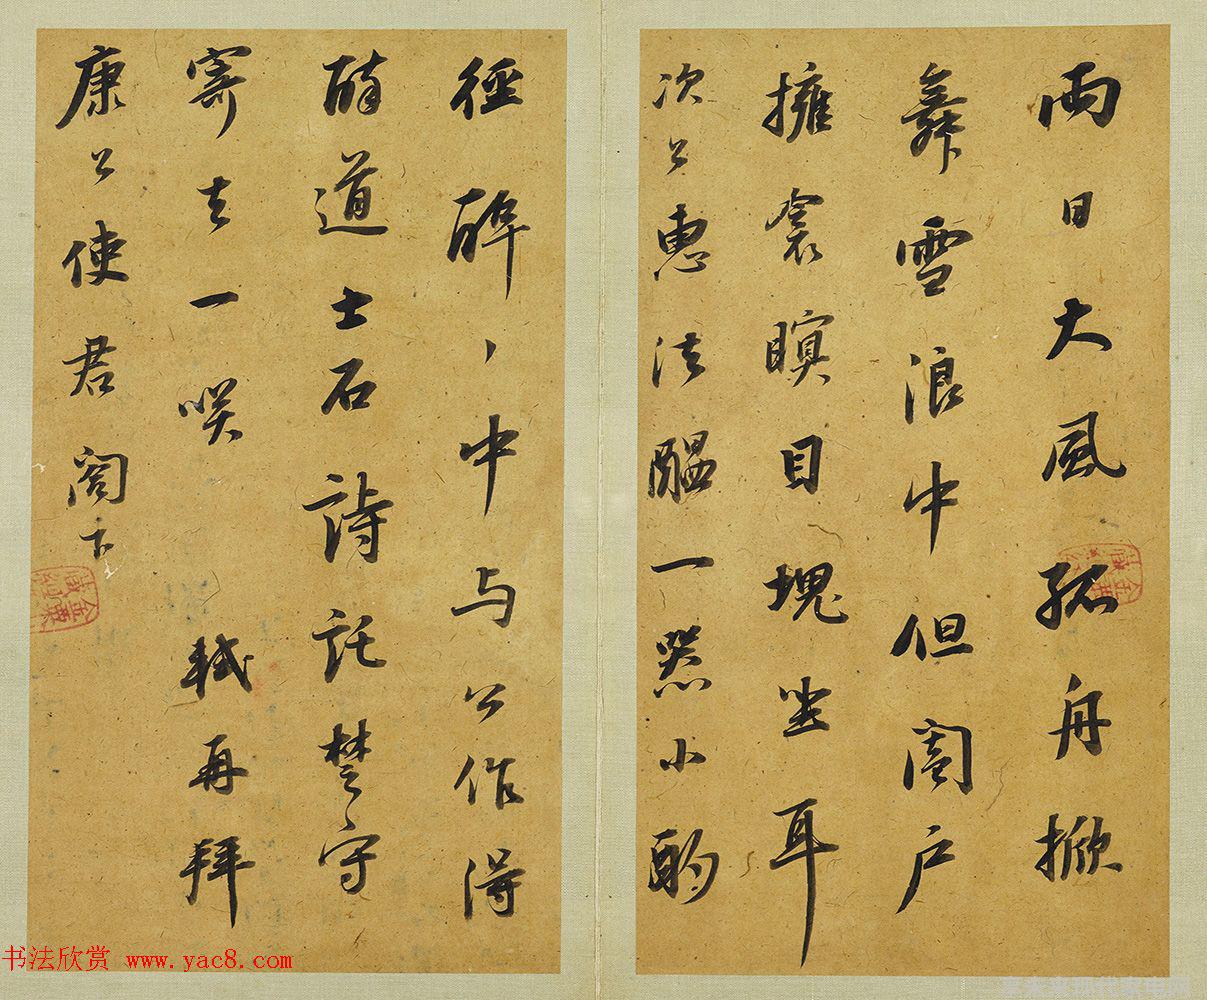 兩日大風孤舟掀
舞雪浪中但闔戶
擁衾瞑目塊坐耳
次公惠法醞一器小酌
徑醉〻中与公作得
醉道士石詩託楚守
寄去一咲 軾再拜
康公使君閤下
书法欣赏 www.yac8.com